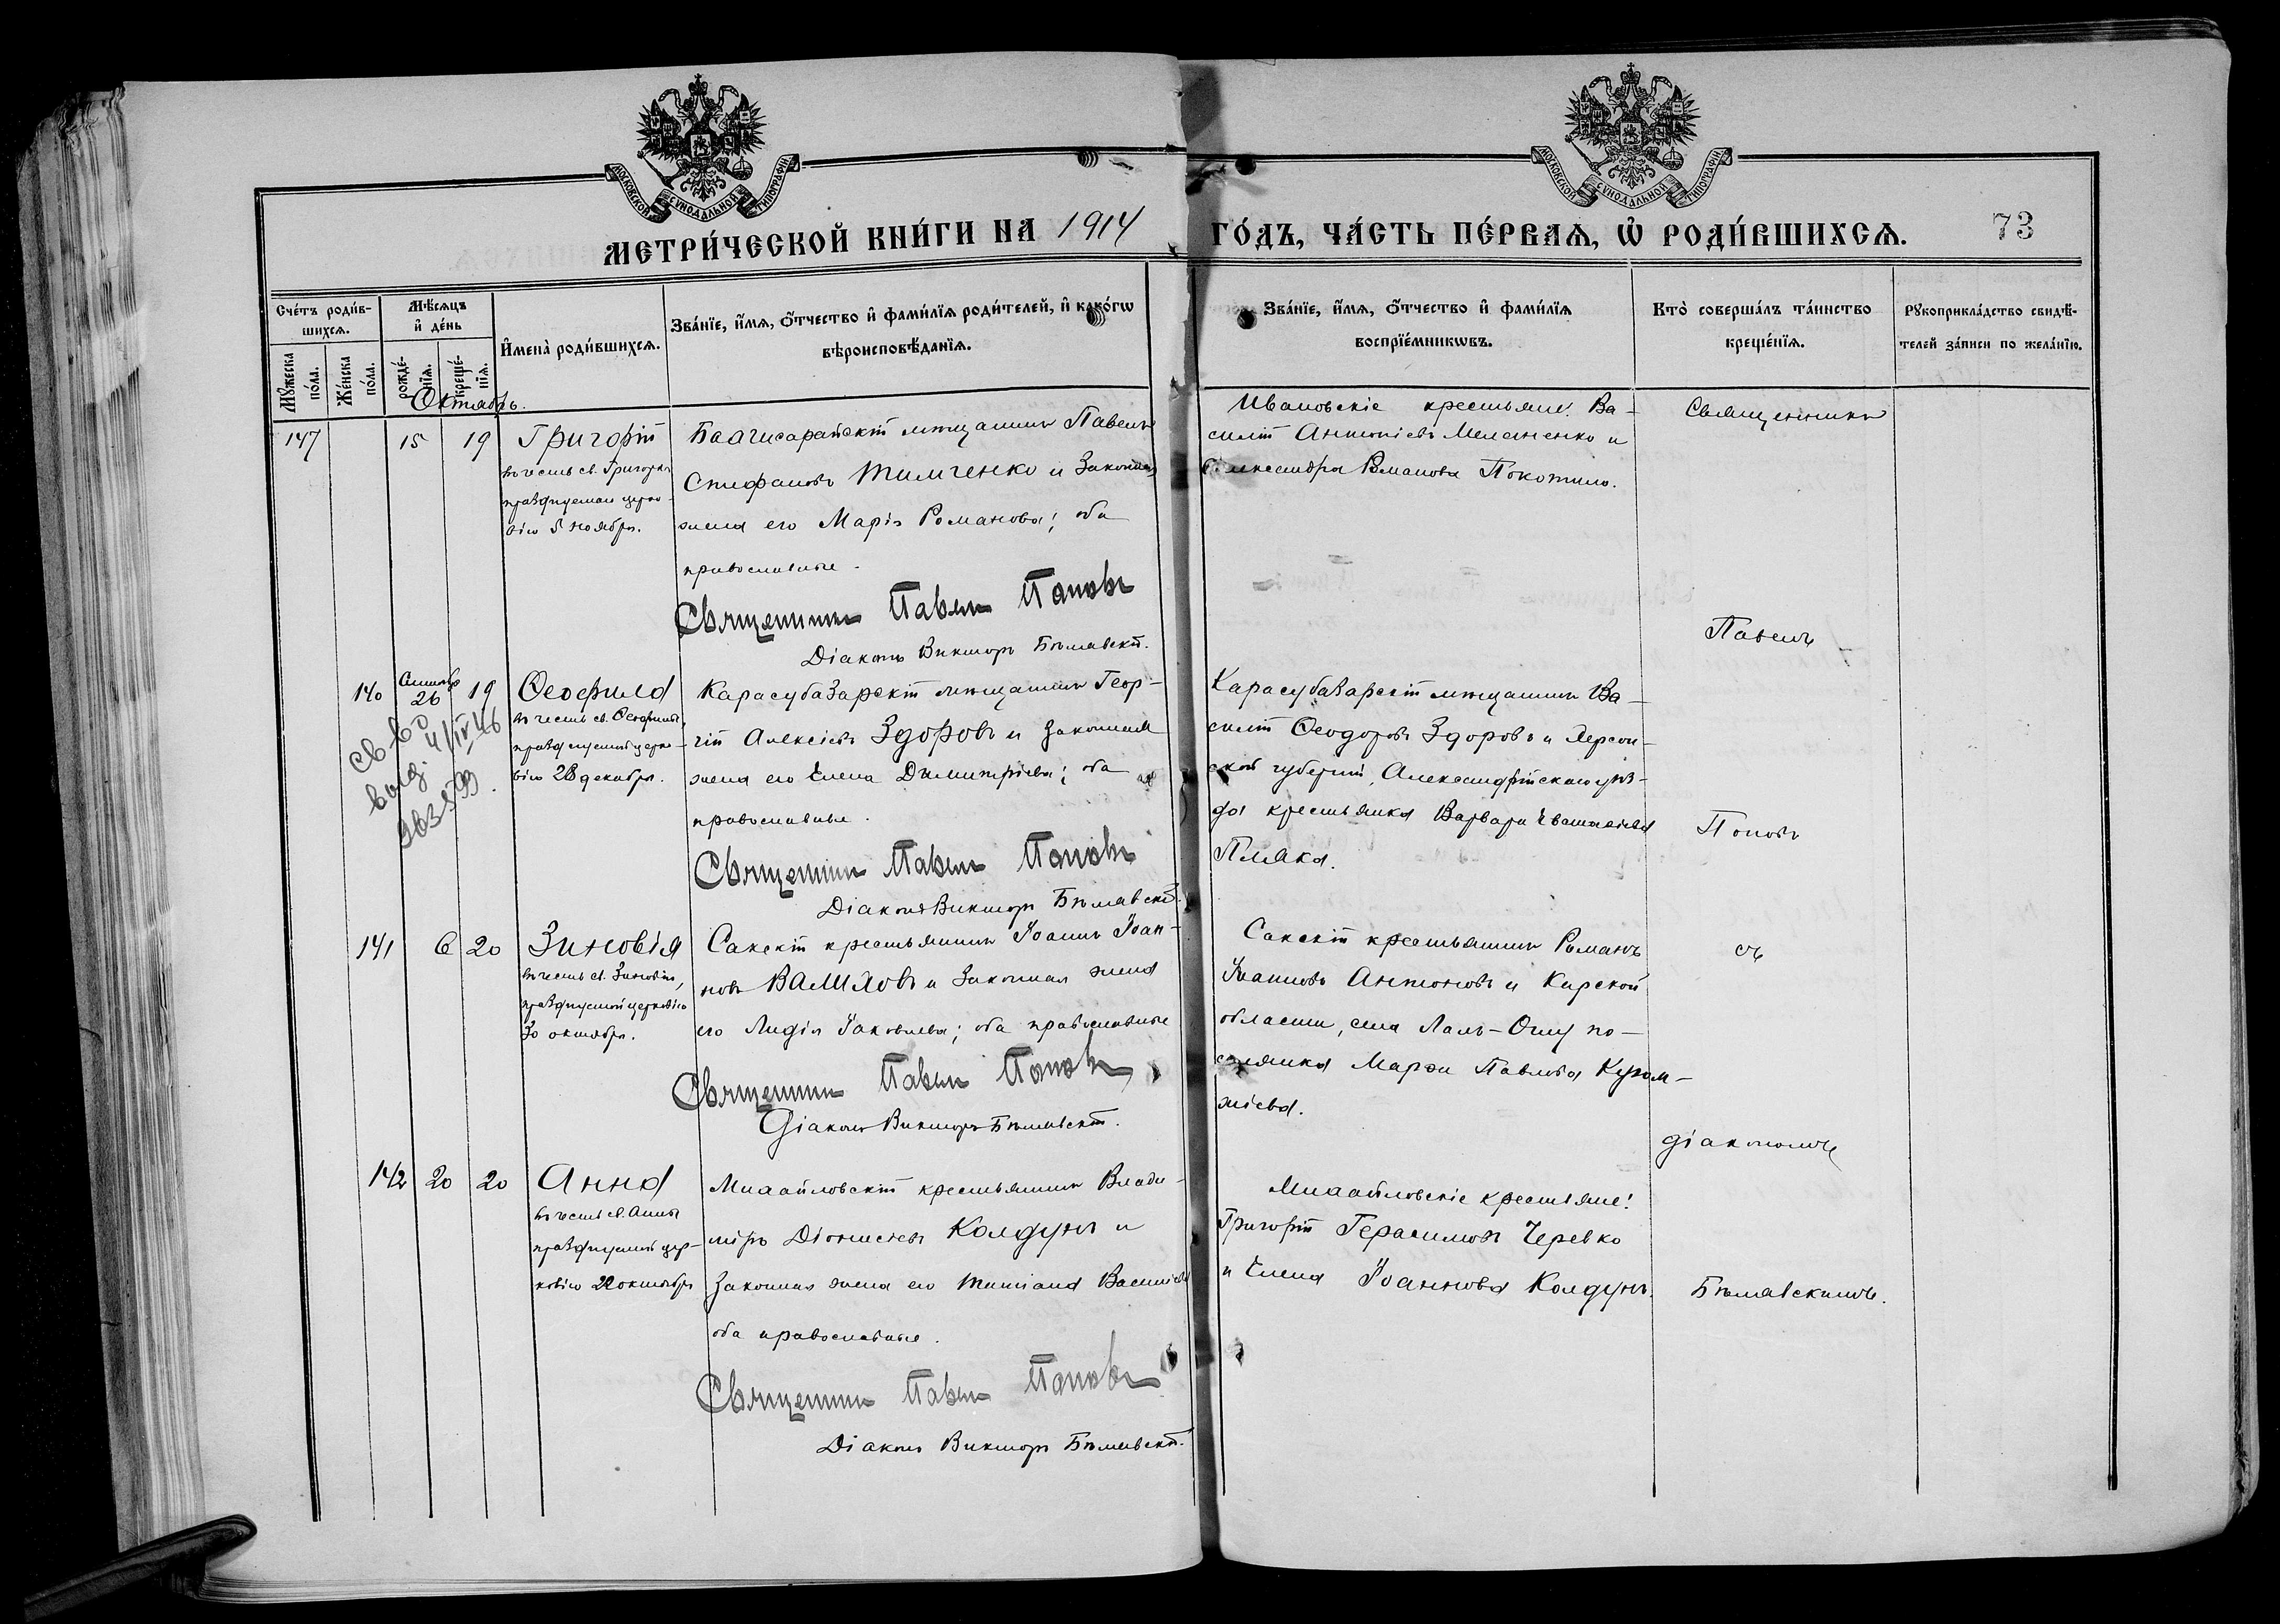 МОСКОВСКОЙ СѴНОДАЛЬНОЙ ТИПОГРАФІИ
МОСКОВСКОЙ СѴНОДАЛЬНОЙ ТИПОГРАФІИ
МЕТРИ́ЧЕСКОЙ КНИ́ГИ НА 1914
ГО́ДЪ, ЧА́СТЬ ПЕ́РВАѦ, Ѡ҆ РОДИ́ВШИХСѦ.
73
Сче́тъ роди́в-
шихсѧ.
Мꙋ́жеска по́ла.
Же́нска по́ла.
Мѣ́сѧцъ
и҆ де́нь
рожде́-
нїѧ.
креще́-
нїѧ.
И҆мена̀ роди́вшихсѧ.
Зва́нїе, и҆́мѧ, ѻ҆́тчество и҆ фами́лїѧ роди́телей, и҆ како́гѡ
вѣроисповѣ́данїѧ.
Зва́нїе, и҆́мѧ, ѻ҆́тчество и҆ фами́лїѧ
воспрїе́мникѡвъ.
Кто̀ соверша́лъ та́инство
креще́нїѧ.
Рꙋкоприкла́дство свидѣ́-
телей за́писи по жела́нїю.
Октябрь.
147
15
19
Григорій
въ честь св. Григорія
празднуемаго церко-
вію 5 ноября.
Бахчисарайскій мѣщанинъ Павелъ
Стефановъ Тимченко и законная
жена его Марія Романова; оба
православные.
Священникъ Павелъ Поповъ
Діаконъ Викторъ Бѣлявскій.
Ивановскіе крестьяне: Ва-
силій Антоніевъ Меленченко и
Александра Романова Покотило.
Священникъ
Павелъ
140
Сентябр
26
19
Ѳеофила
въ честь св. Ѳеофилы,
празднуемой церко-
вію 28 декабря.
Карасубазарскій мѣщанинъ Геор-
гій Алексіевъ Здоровъ и законная
жена его Елена Димитріева; оба
православные.
Священникъ Павелъ Поповъ
Діаконъ Викторъ Бѣлявскій.
Карасубазарскій мѣщанинъ Ва-
силій Ѳеодоровъ Здоровъ и Херсон-
ской губерніи, Александрійскаго уѣз-
да крестьянка Варвара
Пляка.
Поповъ
св во
выд. 4/IV 46
141
6
20
Зиновія
въ честь св. Зиновіи,
празднуемой церковію
30 октября.
Сакскій крестьянинъ Іоаннъ Іоан-
новъ Вамиловъ и законная жена
его Лидія Іаковлева; оба православные
Священникъ Павелъ Поповъ
Діаконъ Викторъ Бѣлявскій.
Сакскій крестьянинъ Романъ
Іоанновъ Антоновъ и Карской
области, села по-
селянка Марѳа Павлова
жіева.
съ
діакономъ
142
20
20
Анна
въ честь св. Анны
празднуемой цер-
ковію 22 октября
Михайловскій крестьянинъ Влади-
міръ Діонисіевъ Колдунъ и
законная жена его Татіана Василіева
оба православные.
Священникъ Павелъ Поповъ
Діаконъ Викторъ Бѣлявскій.
Михайловскіе крестьяне:
Григорій Герасимовъ Черевко
и Елена Іоаннова Колдунъ.
Бѣлявскимъ.